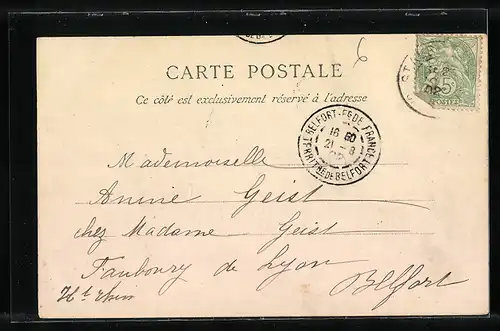 6
CARTE POSTALE
Ce côté est exclusivement réservé à l'adresse
5
POSTES
BELFORT-Fg DE FRANCE
21 - 8
TERRITRE DE BELFORT
Mademoiselle
Annie Geist
chez Madame Geist
Faubourg de Lyon
Belfort
Ht Rhin